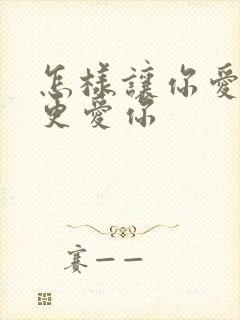 怎樣讓你愛
更愛你
賽——